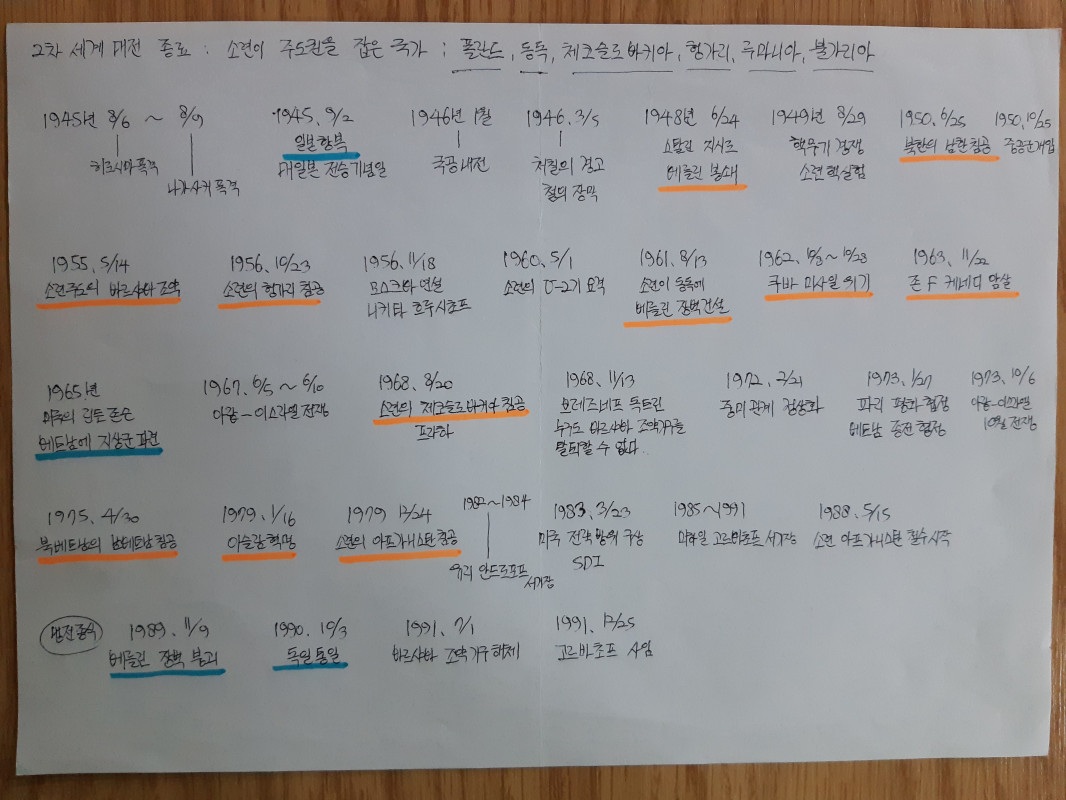 2차 세계 대전 종료 : 소련이 주도권을 잡은 국가 ; 폴란드, 동독, 체코슬로바키아, 헝가리, 루마니아, 불가리아
1945년 8/6 ~ 8/9
히로시마 폭격
나가사키 폭격
1945. 9/2
일본항복
대일본 전승기념일
1946년 1월
국공내전
1946. 3/5
처칠의 경고
철의 장막
1948년 6/24
스탈린 지시로
베를린 봉쇄
1949년 8/29
핵무기 경쟁
소련 핵실험
1950. 6/25
북한의 남한침공
1950. 10/25
중공군개입
1955. 5/14
소련주도의 바르샤바 조약
1956. 10/23
소련의 헝가리 침공
1956. 11/18
모스크바 연설
니키타 흐루시초프
1960. 5/1
소련의 U-2기 요격
1961. 8/13
소련이 동독에
베를린 장벽건설
1962. 10/3 ~ 10/28
쿠바 미사일 위기
1963. 11/22
존 F 케네디 암살
1965년
미국의 린든 존슨
베트남에 지상군 파견
1967. 6/5 ~ 6/10
아랍-이스라엘 전쟁
1968. 8/20
소련의 체코슬로바키아 침공
프라하
1968. 11/13
브레즈네프 독트린
누구도 바르샤바 조약기구를
탈퇴할 수 없다..
1972. 2/21
중미관계 정상화
1973. 1/27
파리 평화 협정
베트남 종전 협정
1973. 10/6
아랍-이스라엘
10월 전쟁
1975. 4/30
북베트남의 남베트남 침공
1979. 1/16
이슬람 혁명
1979 12/24
소련의 아프가니스탄 침공
1982~1984
유리 안드로포프 서기장
1983. 3/23
미국 전략 방위 구상
SDI
1985~1991
미하일 고르바초프 서기장
1988. 5/15
소련 아프가니스탄 철수시작
냉전종식
1989. 11/9
베를린 장벽 붕괴
1990. 10/3
독일통일
1991. 7/1
바르샤바 조약기구 해체
1991. 12/25
고르바초프 사임